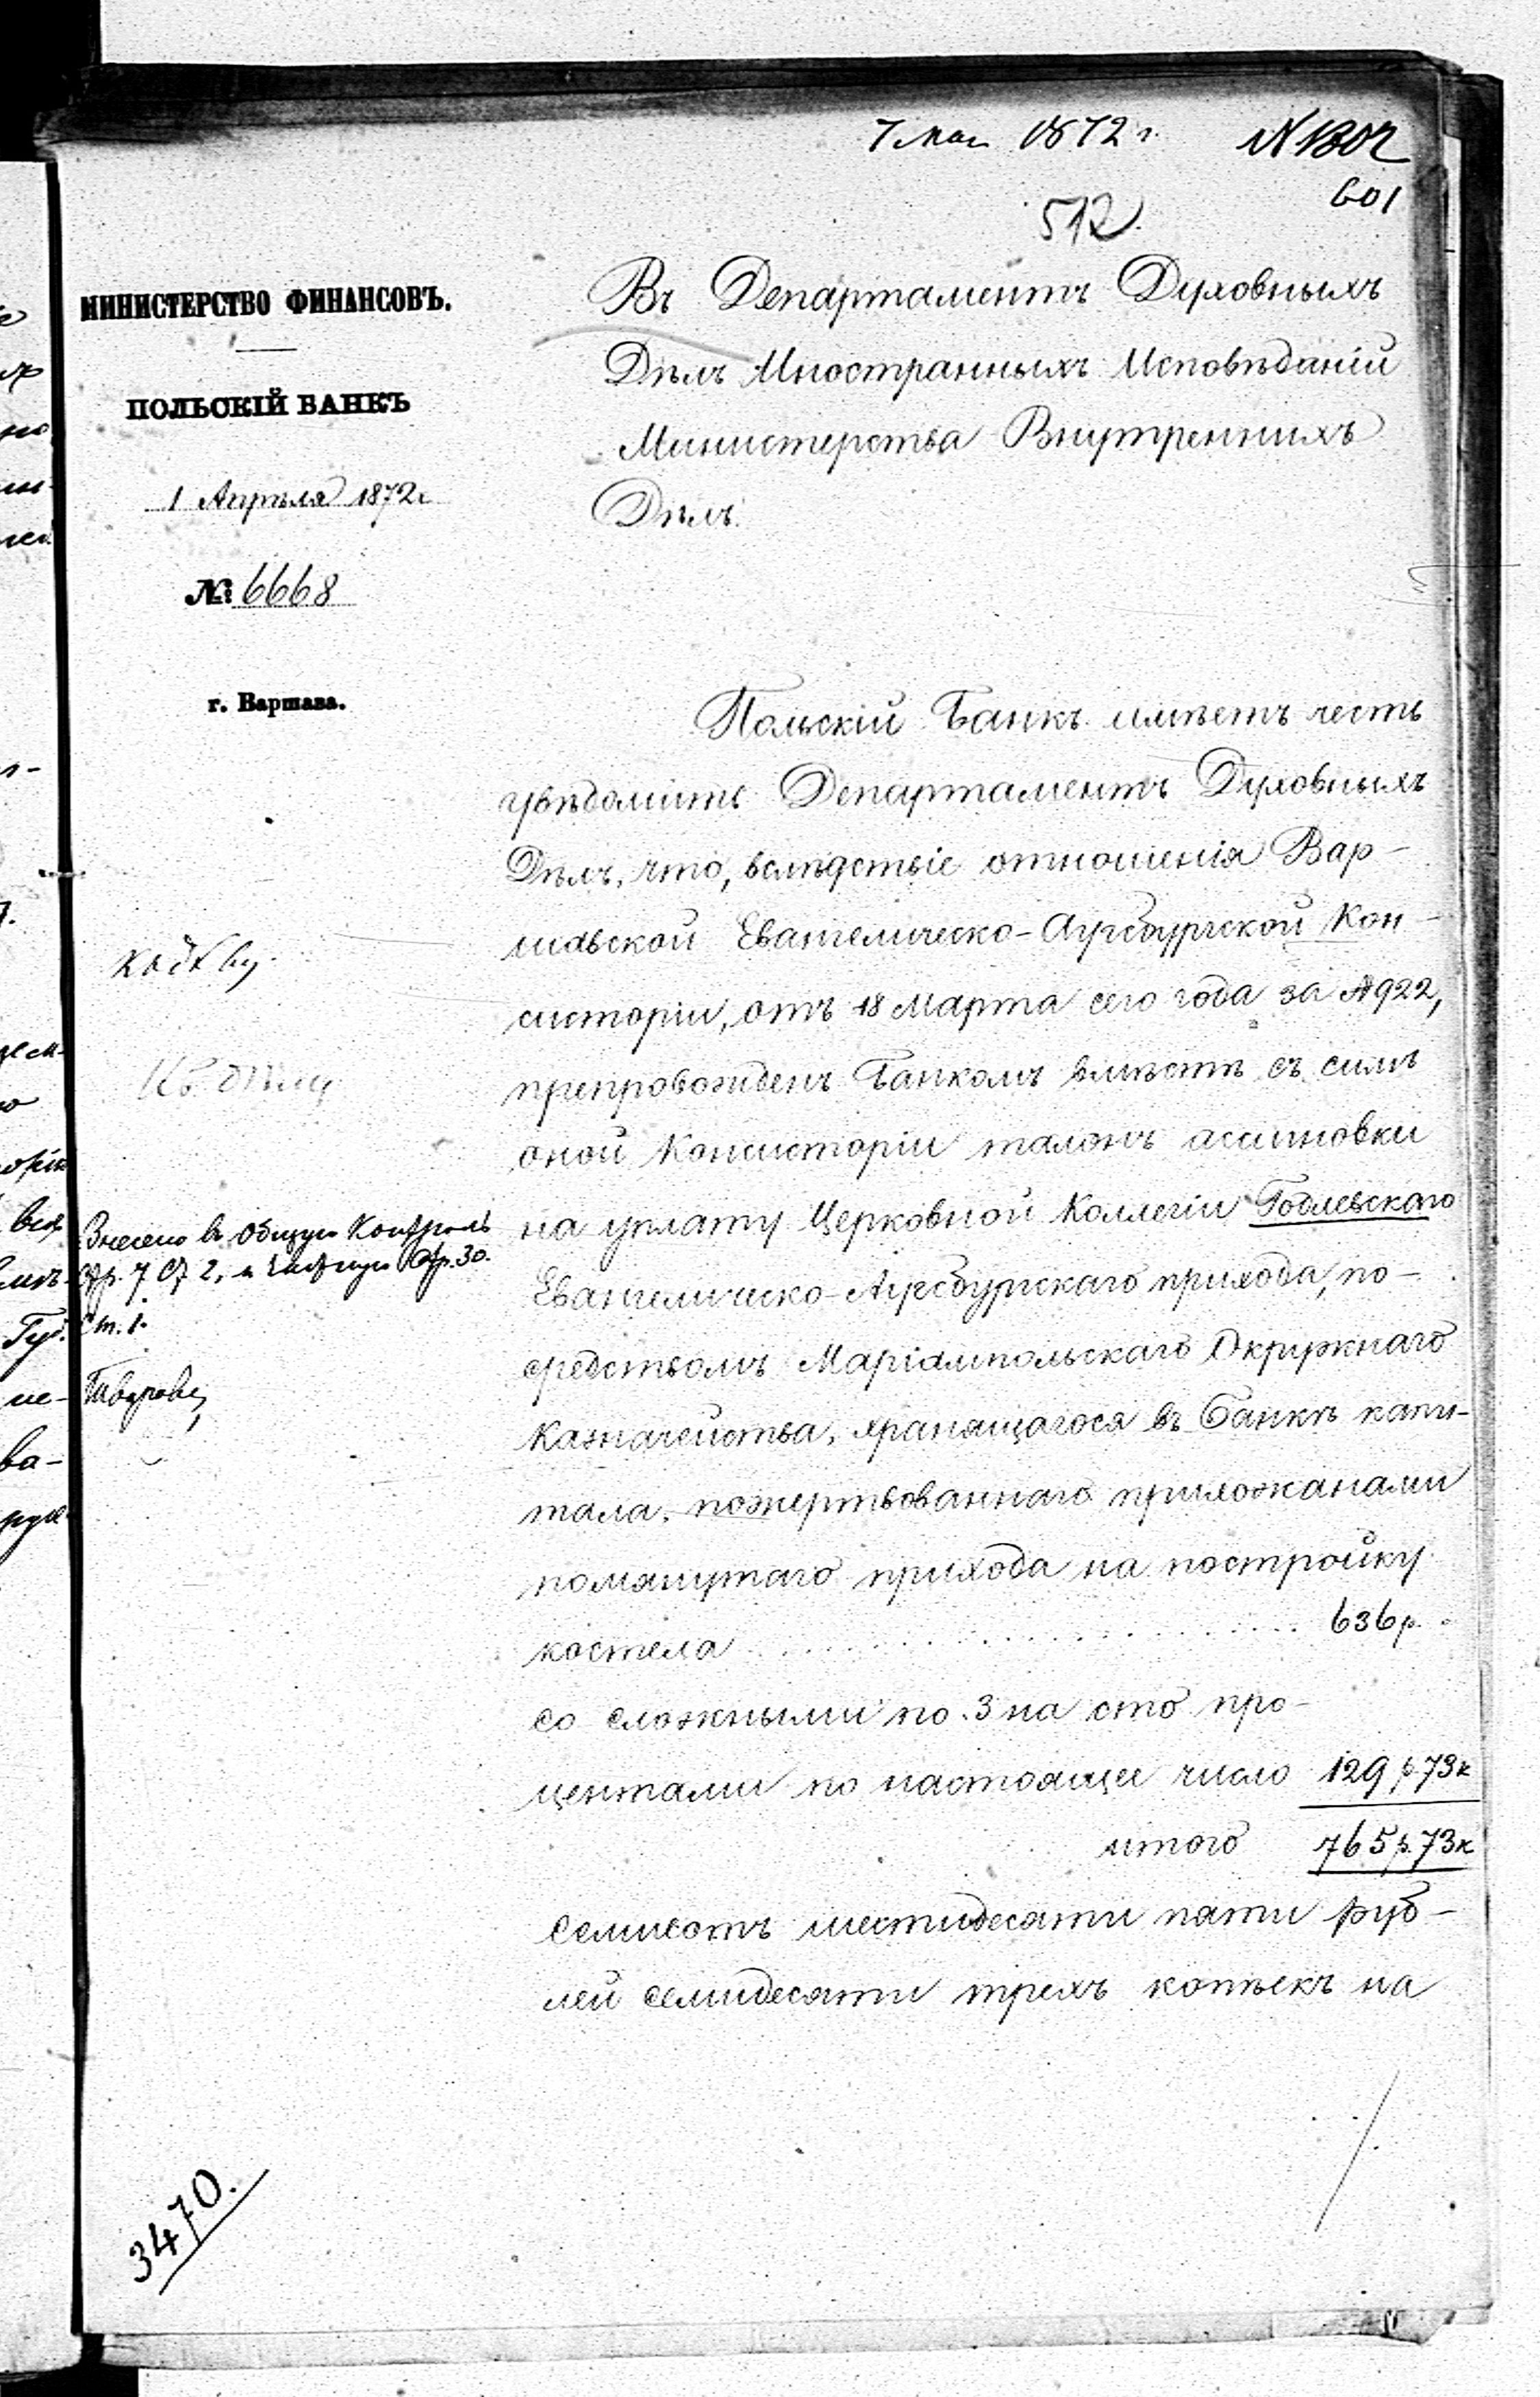 7 мая 1872 г. N 1302
601
512.
МИНИСТЕРСТВО ФИНАНСОВЪ.
ПОЛЬСКІЙ БАНКЪ
1 Апрѣля 1872 г.
№ 6668
г. Варшава.
Въ Департаментъ Духовныхъ
Дѣлъ Иностранныхъ Исповѣданій
Министерства Внутреннихъ
Дѣлъ.
Польскій Банкъ имѣетъ честь
увѣдомить Департаментъ Духовныхъ
Дѣлъ, что, вслѣдствіе отношенія Вар-
шавской Евангелическо-Аугсбургской Кон-
систоріи, отъ 18 Марта сего года за № 922,
препровожденъ Банкомъ вмѣстѣ съ симъ
оной Консисторіи талонъ ассигновки
на уплату Церковной Коллегіи Годлевскаго
Евангелическо-Аугсбургскаго прихода, по-
средствомъ Маріампольскаго Окружнаго
Казначейства, хранящагося въ Банкѣ капи-
тала, пожертвованнаго прихожанами
помянутаго прихода на постройку
костела . . . . . . . . . . . . . . . . 636 р. "
со сложными по 3 на сто про-
центами по настоящее число 129 р. 73 к
итого 765 р. 73 к
семисотъ шестидесяти пяти руб-
лей семидесяти трехъ копѣекъ на
Къ дѣлу
Внесено в общую Контроль
Стр. 7 Ст 2, и частную Стр. 30.
Ст. 1.
3470.